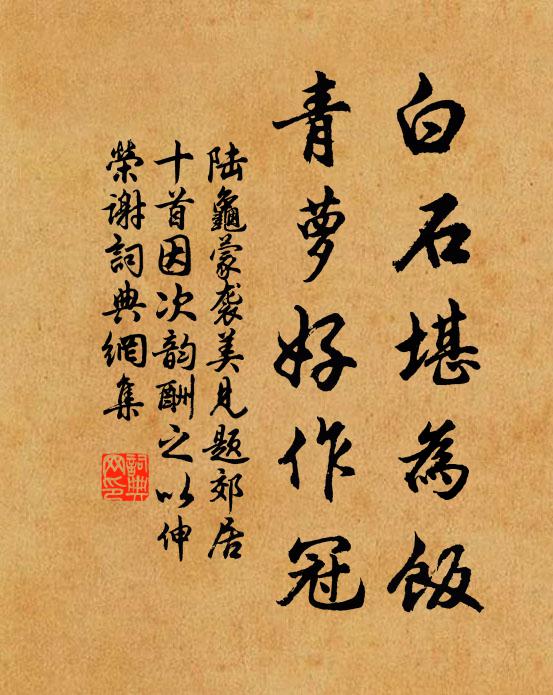 白石堪為飯
青蘿好作冠
陸龜蒙襲美見題郊居
十首因次韵酬之以伸
榮謝詞典網集
詞典
网印